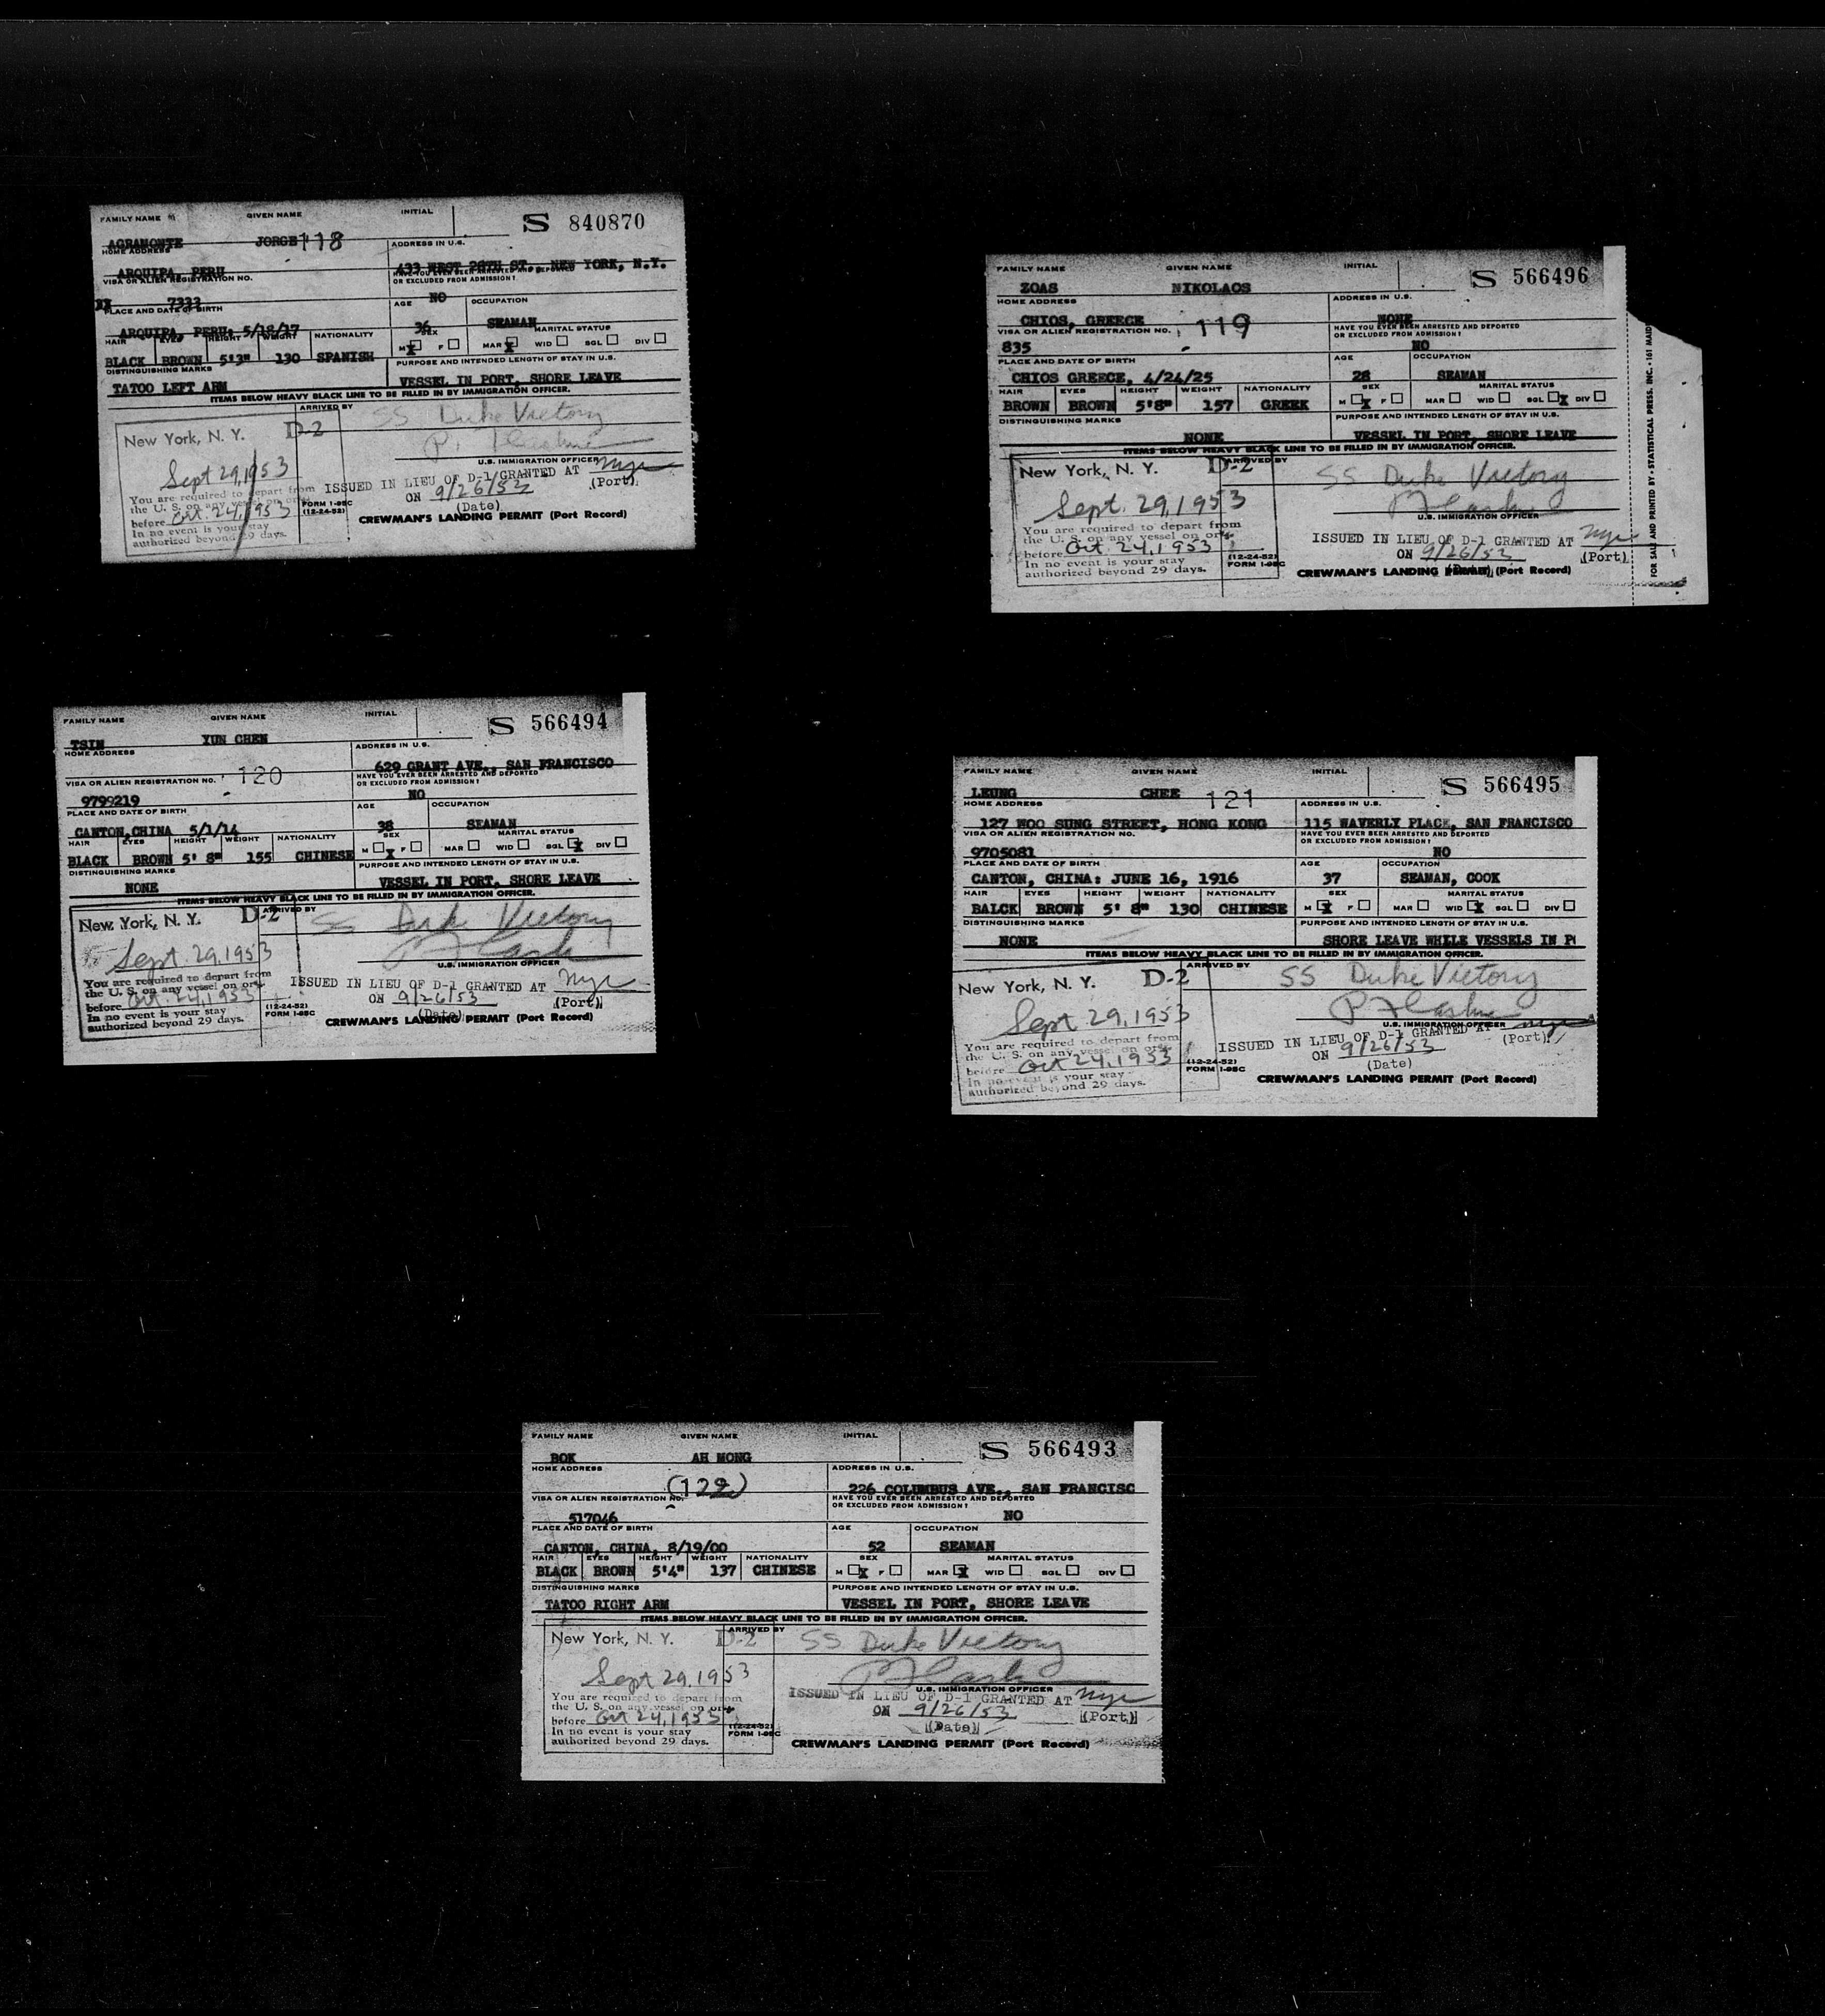 FAMILY NAME GIVEN NAME INITIAL S 840870
AGRAMONTE JORGE 118
HOME ADDRESS ADDRESS IN U.S.
ARQUIPA, PERU 433 WEST 28TH ST., NEW YORK, N.Y.
VISA OR ALIEN REGISTRATION NO. HAVE YOU EVER BEEN ARRESTED AND DEPORTED
OR EXCLUDED FROM ADMISSION?
7333 NO
PLACE AND DATE OF BIRTH AGE OCCUPATION
ARQUIPA, PERU; 5/18/17 36 SEAMAN
HAIR EYES HEIGHT WEIGHT NATIONALITY SEX MARITAL STATUS
M X F MAR X WID SGL DIV
BLACK BROWN 5'3" 130 SPANISH
DISTINGUISHING MARKS PURPOSE AND INTENDED LENGTH OF STAY IN U.S.
TATOO LEFT ARM VESSEL IN PORT, SHORE LEAVE
ITEMS BELOW HEAVY BLACK LINE TO BE FILLED IN BY IMMIGRATION OFFICER.
ARRIVED BY SS Duke Victory
New York, N. Y. D-2
U.S. IMMIGRATION OFFICER
Sept 29, 1953
ISSUED IN LIEU OF D-1 GRANTED AT nyc
(Port)
ON 9/26/53
(Date)
You are required to depart from
the U. S. on any vessel on or
before Oct. 24, 1953
In no event is your stay
authorized beyond 29 days.
FORM I-95C
(12-24-52)
CREWMAN'S LANDING PERMIT (Port Record)
FAMILY NAME GIVEN NAME INITIAL S 566496
ZOAS NIKOLAOS
HOME ADDRESS ADDRESS IN U.S.
CHIOS, GREECE NONE
VISA OR ALIEN REGISTRATION NO. 119 HAVE YOU EVER BEEN ARRESTED AND DEPORTED
OR EXCLUDED FROM ADMISSION?
835 NO
PLACE AND DATE OF BIRTH AGE OCCUPATION
CHIOS GREECE, 4/24/25 28 SEAMAN
HAIR EYES HEIGHT WEIGHT NATIONALITY SEX MARITAL STATUS
BROWN BROWN 5'8" 157 GREEK M X F MAR WID SGL X DIV
DISTINGUISHING MARKS PURPOSE AND INTENDED LENGTH OF STAY IN U.S.
NONE VESSEL IN PORT, SHORE LEAVE
ITEMS BELOW HEAVY BLACK LINE TO BE FILLED IN BY IMMIGRATION OFFICER.
New York, N. Y. D-2 ARRIVED BY SS Duke Victory
Sept. 29, 1953
U.S. IMMIGRATION OFFICER
You are required to depart from
the U. S. on any vessel on or
before Oct. 24, 1953
In no event is your stay
authorized beyond 29 days.
(12-24-52)
FORM I-95C
ISSUED IN LIEU OF D-1 GRANTED AT nyc
ON 9/26/53 (Port)
(Date)
CREWMAN'S LANDING PERMIT (Port Record)
FOR SALE AND PRINTED BY • STATISTICAL PRESS, INC. • 161 MAID
FAMILY NAME GIVEN NAME INITIAL S 566494
TSIN YUN CHEN
HOME ADDRESS ADDRESS IN U.S.
629 GRANT AVE., SAN FRANCISCO
VISA OR ALIEN REGISTRATION NO. 120 HAVE YOU EVER BEEN ARRESTED AND DEPORTED
OR EXCLUDED FROM ADMISSION?
9799219 NO
PLACE AND DATE OF BIRTH AGE OCCUPATION
CANTON, CHINA 5/1/14 38 SEAMAN
HAIR EYES HEIGHT WEIGHT NATIONALITY SEX MARITAL STATUS
BLACK BROWN 5' 8" 155 CHINESE M X F MAR WID SGL X DIV
DISTINGUISHING MARKS PURPOSE AND INTENDED LENGTH OF STAY IN U.S.
NONE VESSEL IN PORT, SHORE LEAVE
ITEMS BELOW HEAVY BLACK LINE TO BE FILLED IN BY IMMIGRATION OFFICER.
New York, N. Y. D-2 ARRIVED BY SS Duk Victory
Sept. 29, 1953
U.S. IMMIGRATION OFFICER
You are required to depart from
the U. S. on any vessel on or
before Oct. 24, 1953
In no event is your stay
authorized beyond 29 days.
(12-24-52)
FORM I-95C
ISSUED IN LIEU OF D-1 GRANTED AT nyc
ON 9/26/53 (Port)
(Date)
CREWMAN'S LANDING PERMIT (Port Record)
FAMILY NAME GIVEN NAME INITIAL S 566495
LEUNG CHEE 121
HOME ADDRESS ADDRESS IN U.S.
127 WOO SUNG STREET, HONG KONG 115 WAVERLY PLACE, SAN FRANCISCO
VISA OR ALIEN REGISTRATION NO. HAVE YOU EVER BEEN ARRESTED AND DEPORTED
OR EXCLUDED FROM ADMISSION?
9705081 NO
PLACE AND DATE OF BIRTH AGE OCCUPATION
CANTON, CHINA: JUNE 16, 1916 37 SEAMAN, COOK
HAIR EYES HEIGHT WEIGHT NATIONALITY SEX MARITAL STATUS
BALCK BROWN 5' 8" 130 CHINESE M X F MAR WID X SGL DIV
DISTINGUISHING MARKS PURPOSE AND INTENDED LENGTH OF STAY IN U.S.
NONE SHORE LEAVE WHILE VESSELS IN PO
ITEMS BELOW HEAVY BLACK LINE TO BE FILLED IN BY IMMIGRATION OFFICER.
New York, N. Y. D-2 ARRIVED BY SS Duke Victory
Sept 29, 1953
U.S. IMMIGRATION OFFICER
You are required to depart from
the U. S. on any vessel on or
before Oct 24, 1953
In no event is your stay
authorized beyond 29 days.
(12-24-52)
FORM I-95C
ISSUED IN LIEU OF D-1 GRANTED AT nyc
ON 9/26/53 (Port)
(Date)
CREWMAN'S LANDING PERMIT (Port Record)
FAMILY NAME GIVEN NAME INITIAL S 566493
BOK AH MONG
HOME ADDRESS (122) ADDRESS IN U.S.
226 COLUMBUS AVE., SAN FRANCISC
VISA OR ALIEN REGISTRATION NO. HAVE YOU EVER BEEN ARRESTED AND DEPORTED
OR EXCLUDED FROM ADMISSION?
517046 NO
PLACE AND DATE OF BIRTH AGE OCCUPATION
CANTON, CHINA, 8/19/00 52 SEAMAN
HAIR EYES HEIGHT WEIGHT NATIONALITY SEX MARITAL STATUS
BLACK BROWN 5'4" 137 CHINESE M X F MAR X WID SGL DIV
DISTINGUISHING MARKS PURPOSE AND INTENDED LENGTH OF STAY IN U.S.
TATOO RIGHT ARM VESSEL IN PORT, SHORE LEAVE
ITEMS BELOW HEAVY BLACK LINE TO BE FILLED IN BY IMMIGRATION OFFICER.
New York, N. Y. D-2 ARRIVED BY SS Duke Victory
Sept 29, 1953
U.S. IMMIGRATION OFFICER
You are required to depart from
the U. S. on any vessel on or
before Oct 24, 1953
In no event is your stay
authorized beyond 29 days.
(12-24-52)
FORM I-95C
ISSUED IN LIEU OF D-1 GRANTED AT nyc
ON 9/26/53 (Port)
(Date)
CREWMAN'S LANDING PERMIT (Port Record)